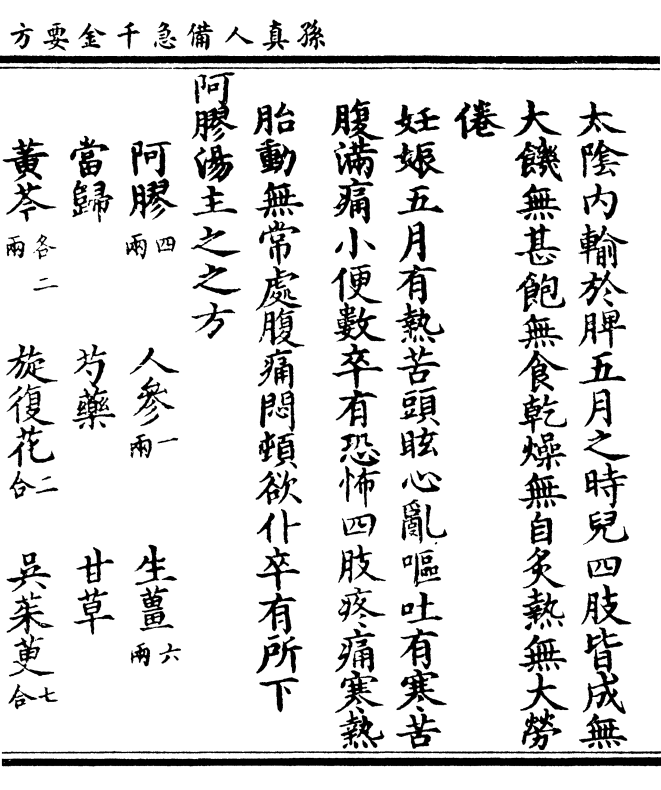 孫真人備急千金要方
太陰内輸於脾五月之時兒四肢皆成無
大饑無甚飽無食乾燥無自炙熱無大勞
倦
妊娠五月有熱苦頭眩心亂嘔吐有寒苦
腹滿痛小便數卒有恐怖四肢疼痛寒熱
胎動無常處腹痛悶頓欲仆卒有所下
阿膠湯主之之方
阿膠四兩 人參一兩 生薑六兩
當歸 芍藥 甘草
黃芩各二兩 旋復花二合 吳茱萸七合